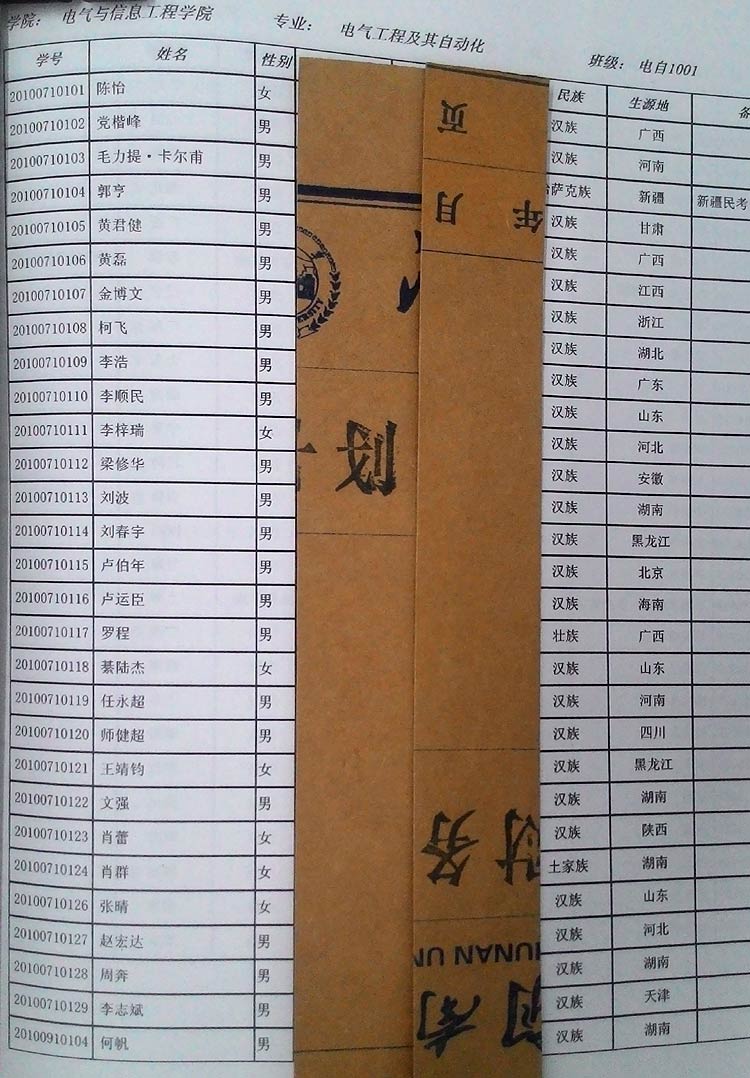 学院： 电气与信息工程学院 专业： 电气工程及其自动化 班级： 电自1001
学号 姓名 性别 民族 生源地 备
20100710101 陈怡 女 汉族 广西
20100710102 党楷峰 男 汉族 河南
20100710103 毛力提·卡尔甫 男 萨克族 新疆 新疆民考
20100710104 郭亨 男 汉族 甘肃
20100710105 黄君健 男 汉族 广西
20100710106 黄磊 男 汉族 江西
20100710107 金博文 男 汉族 浙江
20100710108 柯飞 男 汉族 湖北
20100710109 李浩 男 汉族 广东
20100710110 李顺民 男 汉族 山东
20100710111 李梓瑞 女 汉族 河北
20100710112 梁修华 男 汉族 安徽
20100710113 刘波 男 汉族 湖南
20100710114 刘春宇 男 汉族 黑龙江
20100710115 卢伯年 男 汉族 北京
20100710116 卢运臣 男 汉族 海南
20100710117 罗程 男 壮族 广西
20100710118 綦陆杰 女 汉族 山东
20100710119 任永超 男 汉族 河南
20100710120 师健超 男 汉族 四川
20100710121 王靖钧 女 汉族 黑龙江
20100710122 文强 男 汉族 湖南
20100710123 肖蕾 女 汉族 陕西
20100710124 肖群 女 土家族 湖南
20100710126 张晴 女 汉族 山东
20100710127 赵宏达 男 汉族 河北
20100710128 周奔 男 汉族 湖南
20100710129 李志斌 男 汉族 天津
20100910104 何帆 男 汉族 湖南
湖南
HUNAN UN
财务
年 月
页